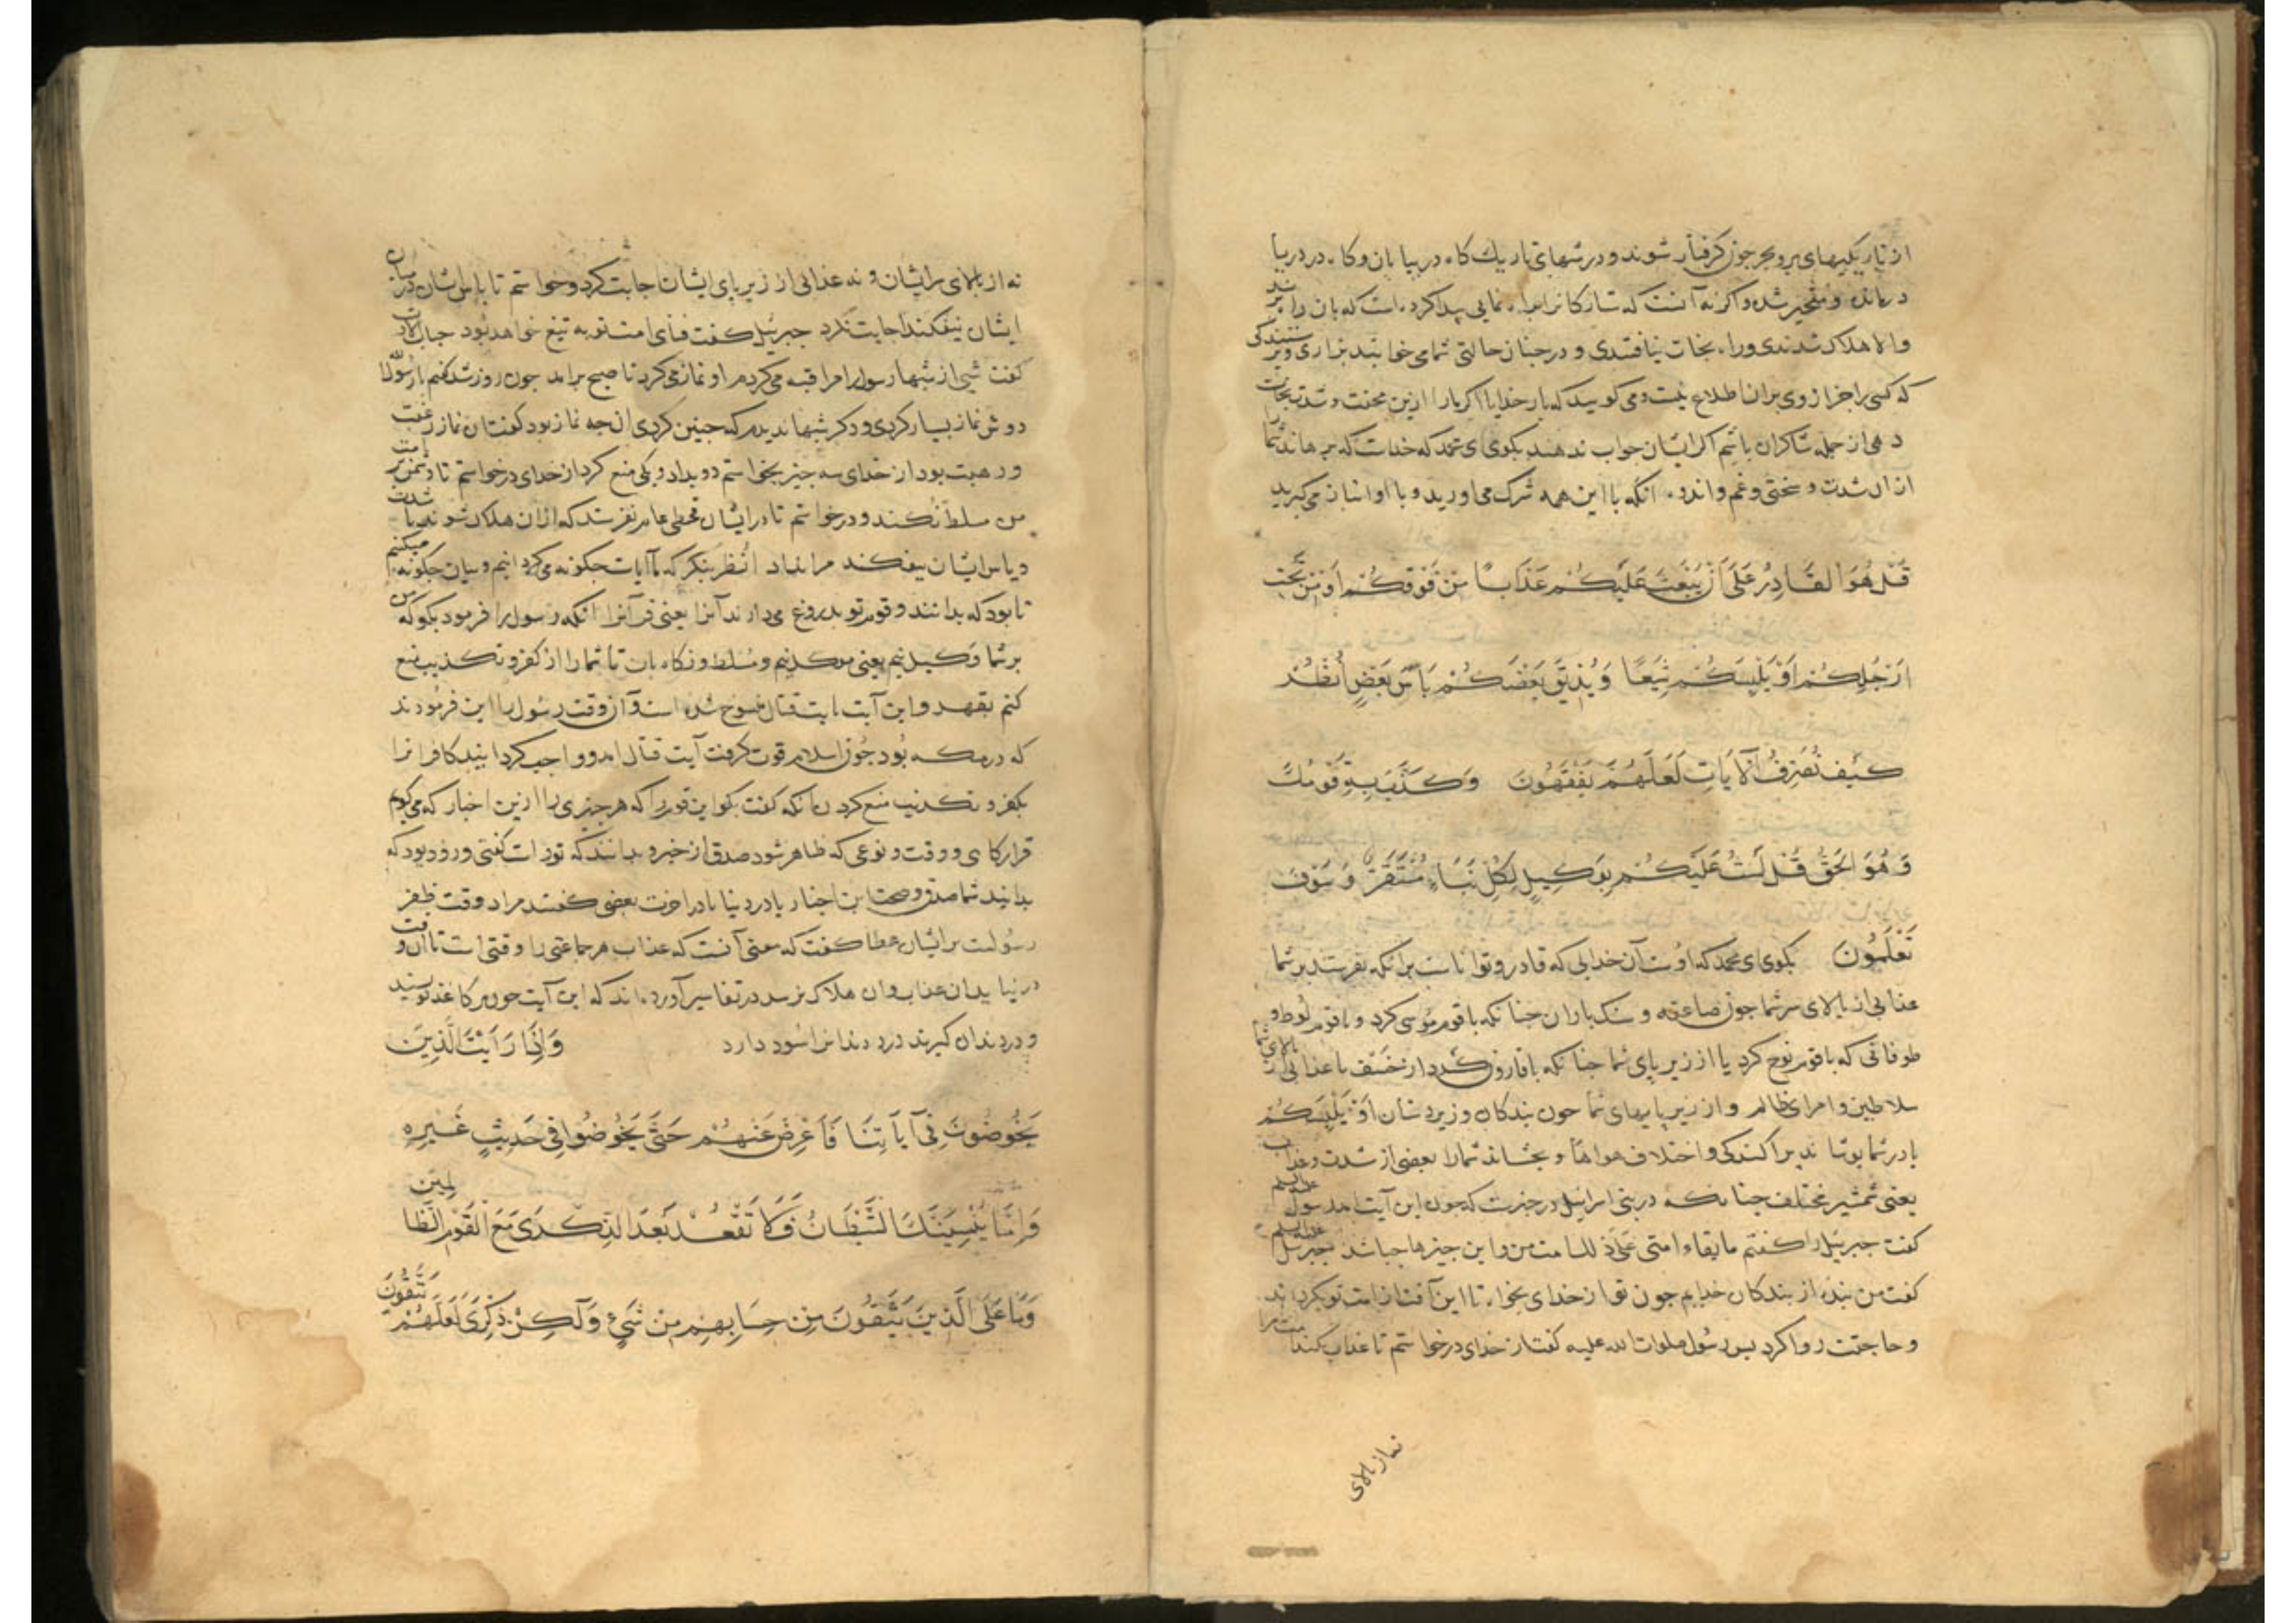 از تاریکیهای بر و بحر جون کرفتار شوند و در شبهای تاریك کاه در بیابان و کاه در دریا
درمانده و متحیر شده و اکر نه آنست که ستارکانرا راه نمایی پیدا کرده است که بان راه برند
والا هلاك شدندی و راه نجات نیافتندی و در جنان حالتی شما می خوانید بزاری و
که کسی را جز از وی بران اطلاع نیست و می کویید که بار خدایا اکر مارا ازین محنت و شدت نجات
دهی از جمله شاکران باشیم اکر ایشان جواب ندهند بکوی ای محمد که خداست که برهاند شما را
ازان شدت و سختی و غم و اندوه آنکه با این همه شرك می اورید و با او انباز می کیرید
قُلْ هُوَ القَادِرُ عَلَى أَنْ يَبْعَثَ عَلَيْكُمْ عَذَابًا مِنْ فَوْقِكُمْ أَوْ مِنْ تَحْتِ
ارْجُلِكُمْ اَوْ يَلْبِسَكُمْ شِيَعًا وَيُذِيقَ بَعْضَكُمْ بَأسَ بَعْضٍ اُنْظُرْ
كَيْفَ نُصَرِّفُ الْآيَاتِ لَعَلَّهُمْ يَفْقَهُونَ وَكَذَّبَ بِهِ قَوْمُكَ
وَ هُوَ الحَقُّ قُلْ لَسْتُ عَلَيْكُمْ بِوَكِيلٍ لِكُلِّ نَبَاءٍ مُسْتَقَرٌّ وَ سَوْفَ
تَعْلَمُونَ بکوی ای محمد که اوست آن خدایی که قادر و تواناست برانکه بفرستد بر شما
عذابی از بالای سر شما جون صاعقه و سنك باران جنانکه با قوم موسی کرد و با قوم لوط و
طوفانی که با قوم نوح کرد یا از زیر پای شما جنانکه با قارون کرد از خسف یا عذابی از بالای شما
سلاطین و امرای ظالم و از زیر پایهای شما جون بندکان و زیردستان اَوْ يَلْبِسَكُمْ
یا در شما بوشاند پراکندکی و اختلاف هواها و بجشاند شمارا بعضی از شدت و عذاب
یعنی شمشیر مختلف جنانکه در بنی اسرائیل در خبرست که جون این آیت امد رسول علیه السلم
کفت جبرئیل را کفتم ما بقاء امتی علی ذلك امت من و این جیزها جه باشد جبرئیل علیه السلم
کفت من بنده از بندکان خدایم جون تو از خدای بخواه تا این آفت از امت تو بکرداند
و حاجتت روا کرد بس رسول صلوات الله علیه کفت از خدای درخواستم تا عذاب نکند امت مرا
نه از بالای
نه از بالای سر ایشان و نه عذابی از زیر پای ایشان اجابت کرد و خواستم تا باس ایشان در میان
ایشان نیفکند اجابت نکرد جبرئیل کفت فنای امت تو به تیغ خواهد بود
کفت شبی از شبها رسول را مراقبه می کردم او نماز می کرد تا صبح برامد جون روز شد کفتم یا رسول الله
دوش نماز بسیار کردی و دکر شبها ندیدم که جنین کردی ان جه نماز بود کفت ان نماز رغبت
و رهبت بود از خدای سه جیز بخواستم دو بداد و یکی منع کرد از خدای درخواستم تا دشمن بر امت
من مسلط نکند و درخواستم تا در ایشان قحطی عام نفرستد که ازان هلاك شوند
در میان ایشان نیفکند مرا نداد اُنْظُر بنکر که ما آیات جکونه می کردانیم و بیان جکونه میکنیم
تا بود که بدانند و قوم تو بدروغ می دارند آنرا یعنی قرآنرا آنکه رسول را فرمود بکو که من
بر شما وکیل نیم یعنی موکل نیم و مسلط و نکاه بان تا شما را از کفر و تکذیب منع
کنم بقهر و این آیت بایت قتال منسوخ شده است و آن وقت رسول را این فرمودند
که در مکه بود جون اسلام قوت کرفت آیت قتال امد و واجب کردانید کافرانرا
بکفر و تکذیب منع کردن آنکه کفت بکو این قوم را که هر جیزی را ازین اخبار که می کویم
قرارکاهی و وقت و نوعی که ظاهر شود صدق ازخبر و بدانند که تو راست کفتی و زود بود که
بدانید شما صدق و صحت این اخبار یا در دنیا یا در اخرت بعضی کفتند مراد وقت ظفر
رسولست بر ایشان عطا کفت که معنی آنست که عذاب هر جماعتی را وقتی است تا آن وقت
در نیاید ان عذاب و ان هلاك نرسد در تفاسیر آورده اند که این آیت جون بر کاغذ نویسند
و در دندان کیرند درد دندانرا سود دارد وَاِذَا رَأَيْتَ الَّذِينَ
يَخُوضُونَ فِي آيَاتِنَا فَأَعْرِضْ عَنْهُمْ حَتَّى يَخُوضُوا فِي حَدِيثٍ غَيْرِهِ
وَاِمَّا يُنْسِيَنَّكَ الشَّيْطَانُ فَلَا تَقْعُدْ بَعْدَ الذِّكْرَى مَعَ الْقَوْمِ الظَّالِمِينَ
وَمَا عَلَى الَّذِينَ يَتَّقُونَ مِنْ حِسَابِهِمْ مِنْ شَيْءٍ وَلَكِنْ ذِكْرَى لَعَلَّهُمْ يَتَّقُونَ